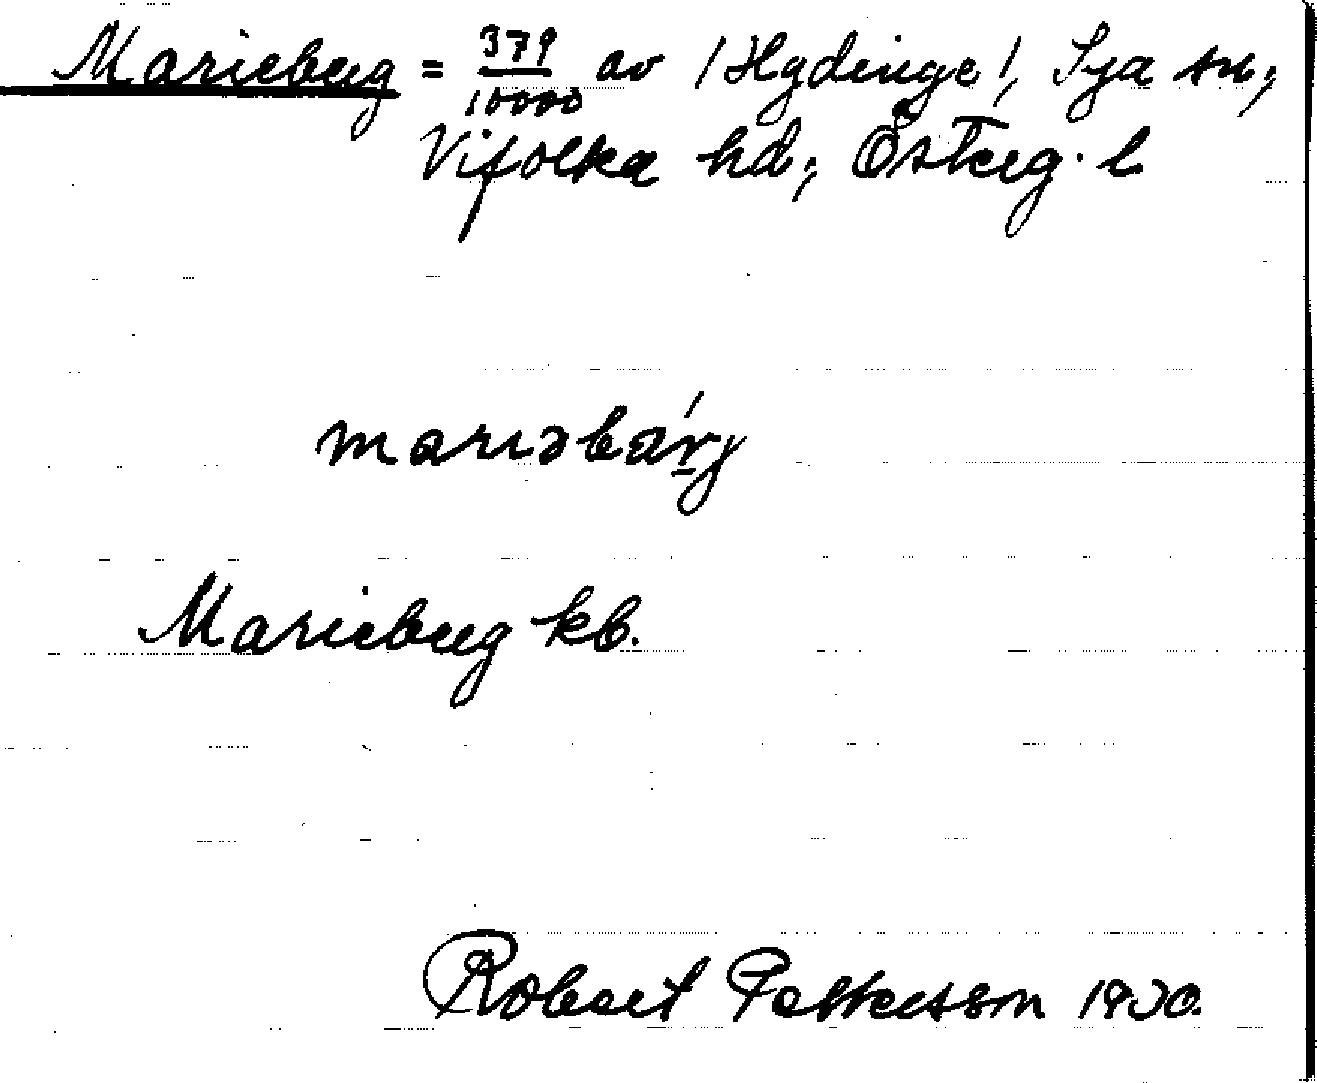 Marieberg = 379/10000 av /Hydinge/, Sya sn,
Vifolka hd, Österg. l
mariəbárj
Marieberg kb.
Robert Pettersson 1930.